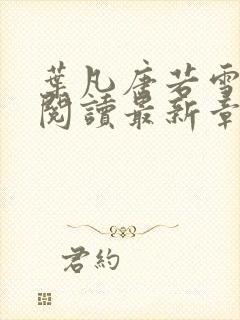 葉凡唐若雪
閱讀最新章
君約